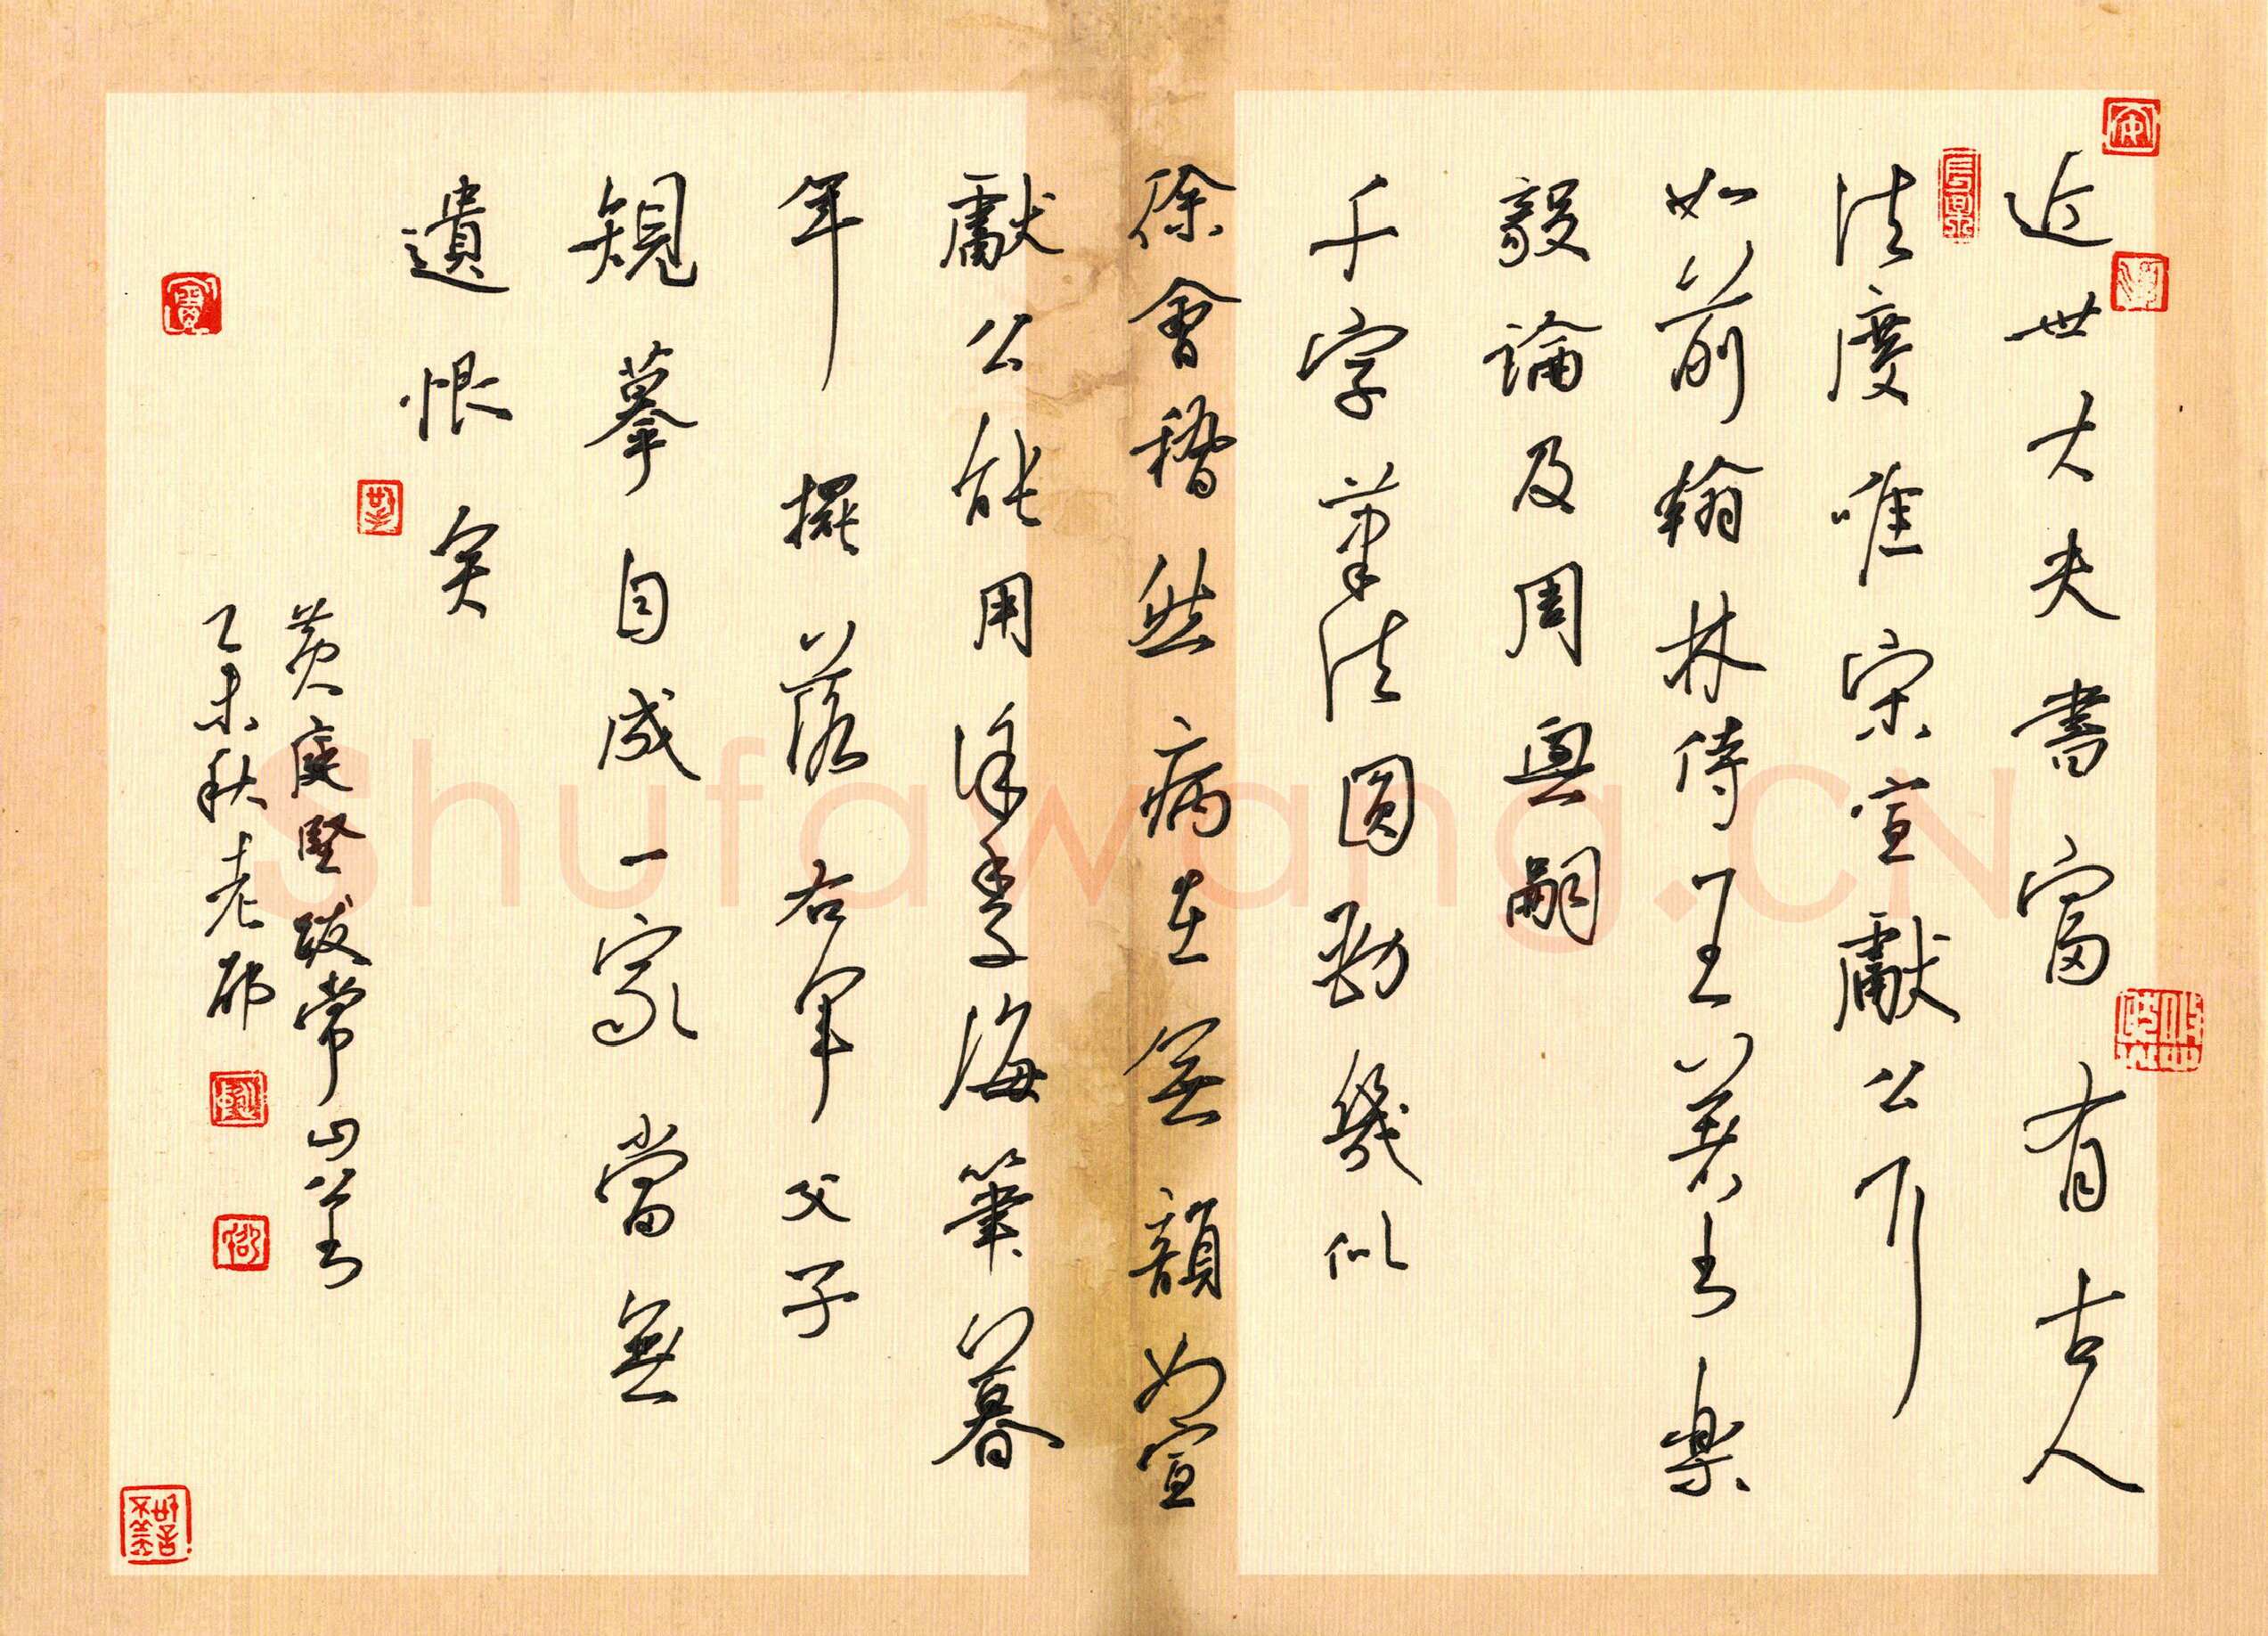 近世士大夫書富有古人
法度唯宋宣獻公耳
如前翰林侍王著書樂
毅論及周興嗣
千字筆法圓勁幾似
徐會稽然病在無韻如宣
獻公能用徐季海筆暮
年擺落右軍父子
規摹自成一家當無
遺恨矣
黃庭堅跋常山公書
乙未秋老邵
Shufawang.CN